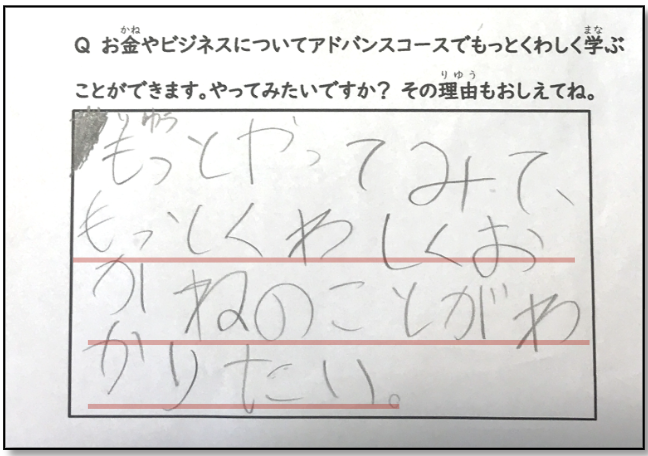 Q お金やビジネスについてアドバンスコースでもっとくわしく学ぶ
ことができます。やってみたいですか? その理由もおしえてね。
りゆう
もっとやってみて、
もっとくわしくお
かねのことがわ
かりたい。